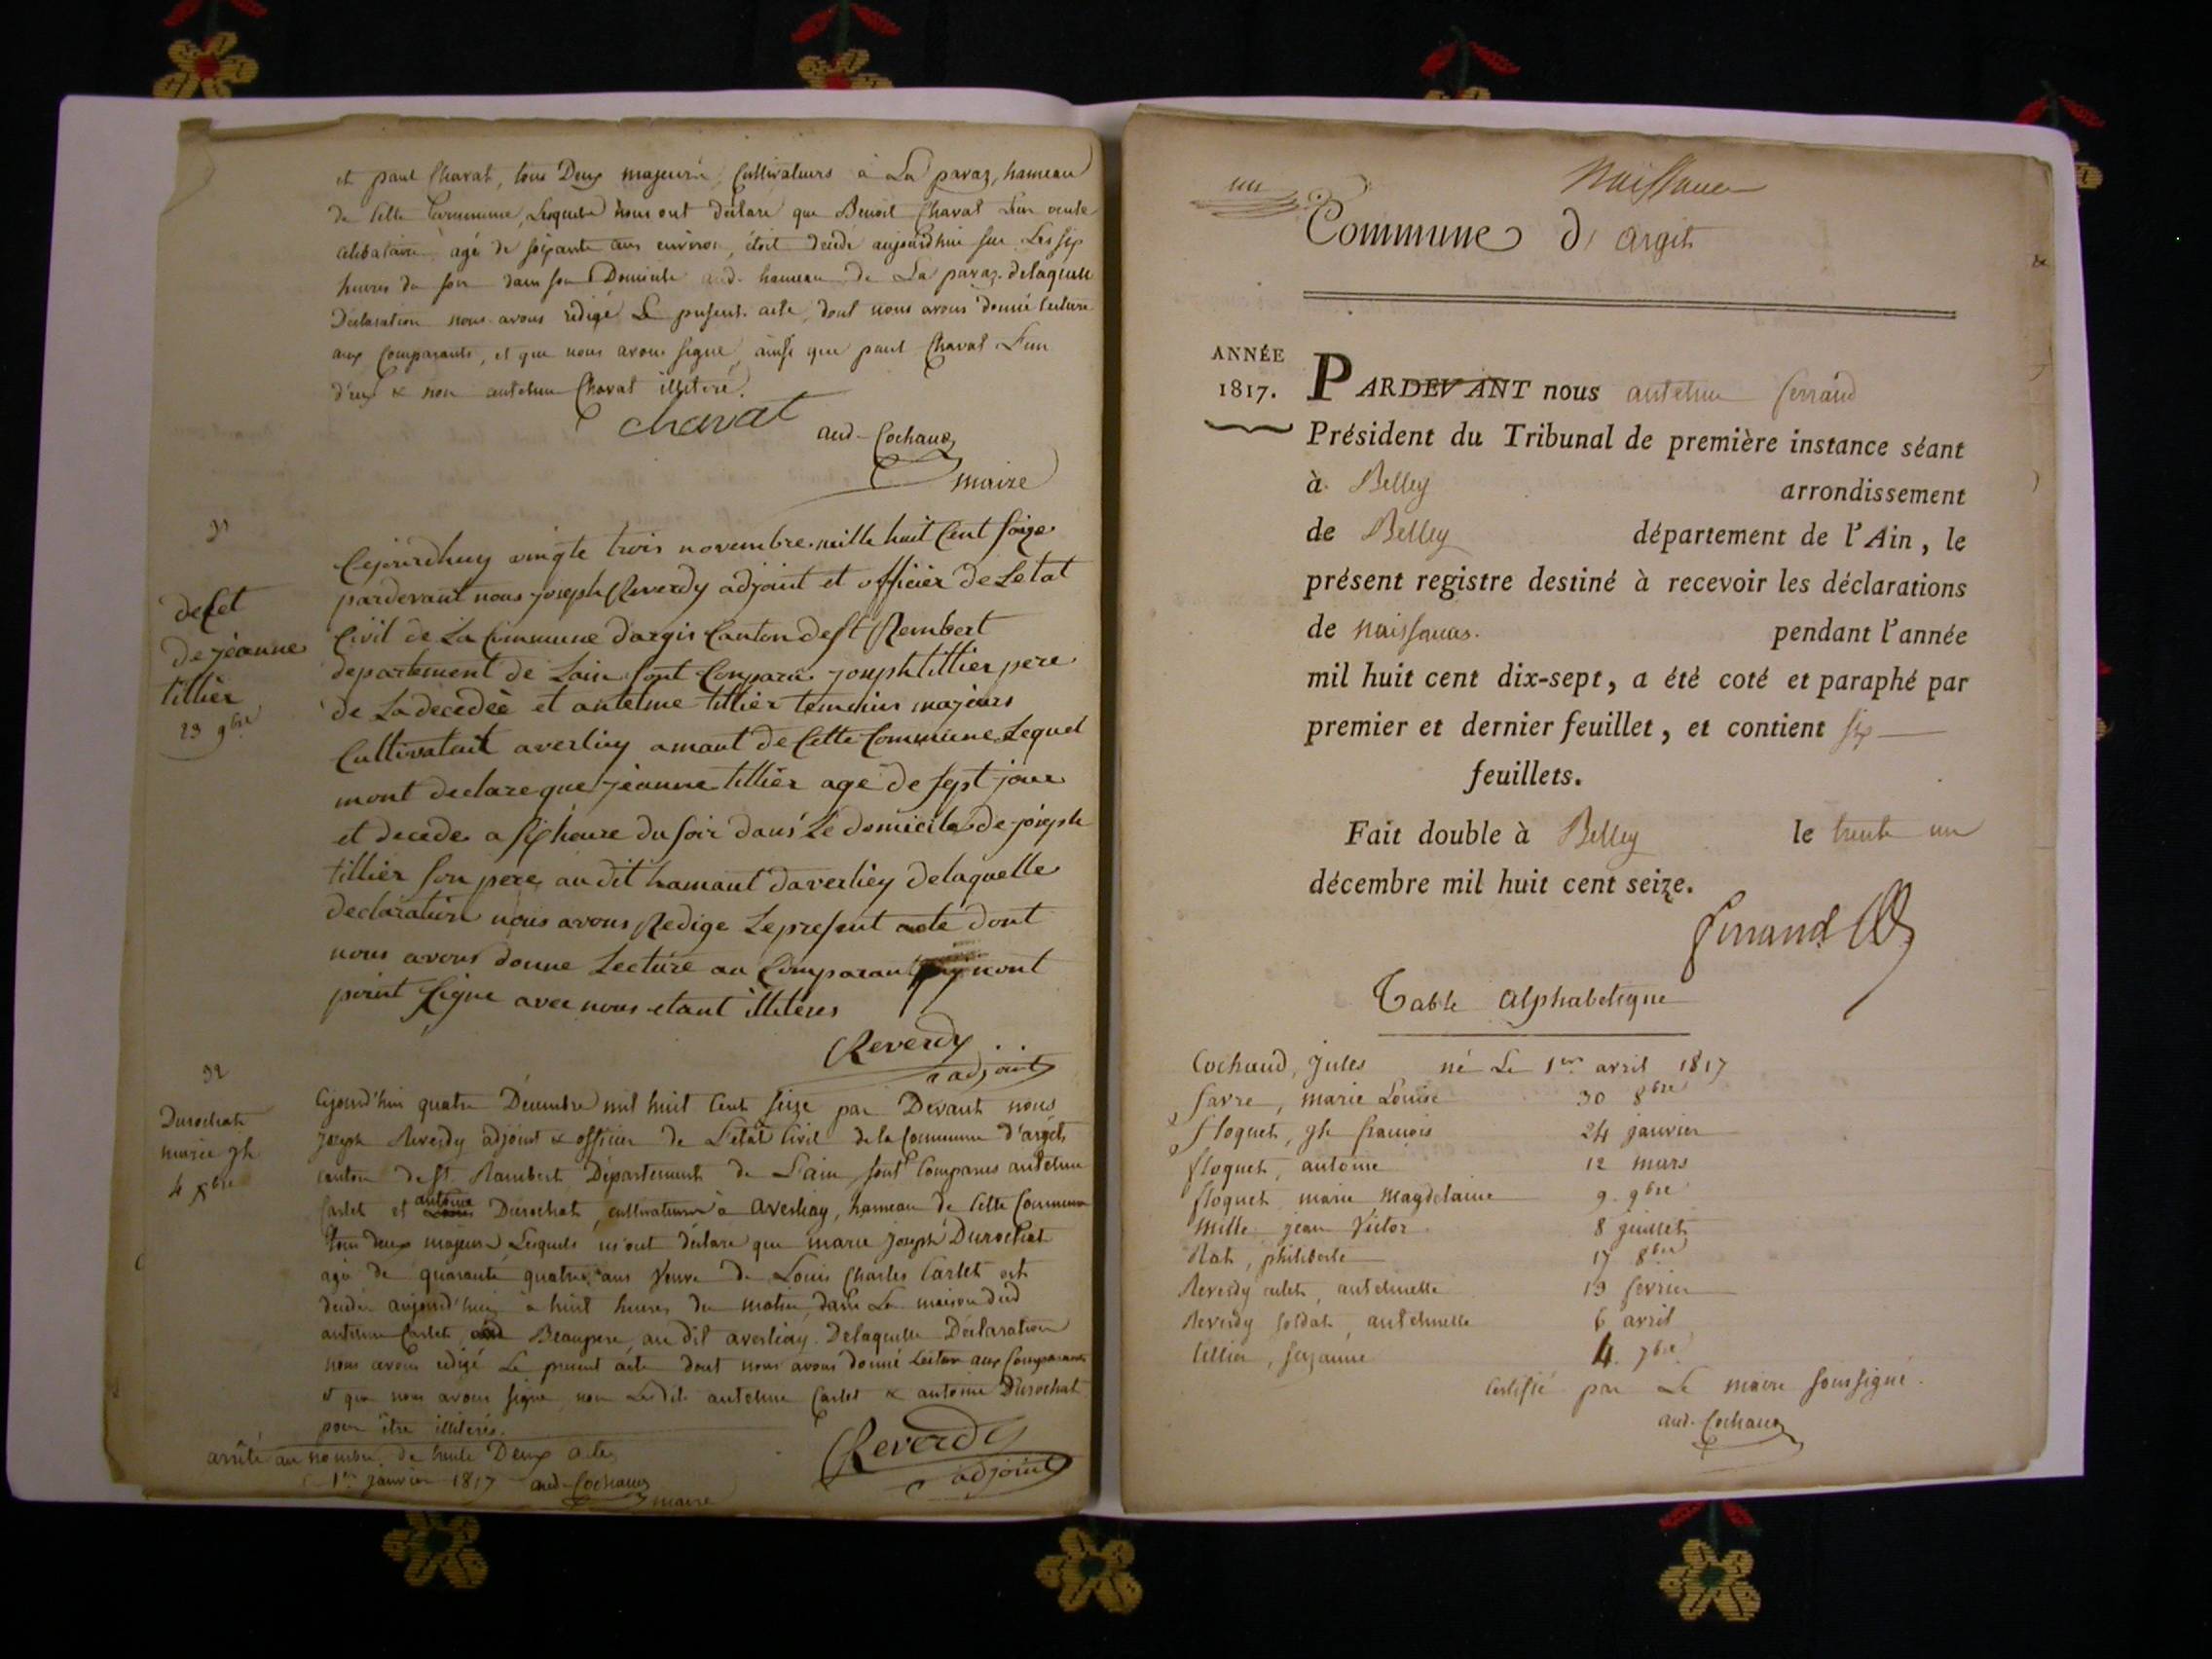 et paul Chavat, tous Deux majeurs, Cultivateurs à La paraz, hameau
de Cette Commune, Lesquels nous ont déclaré que Benoit Chavat Leur oncle
célibataire âgé de soixante ans environ, étoit décédé aujourdhui sur Les six
heures du soir dans son Domicile aud. hameau de La paraz. delaquelle
Déclaration nous avons rédigé Le present acte, dont nous avons donné lecture
aux Comparants, et que nous avons signé, ainsi que paul Chavat L'un
d'eux & non antelme Chavat illiteré.
chavat
and-Cochaud
maire
31
Cejourdhuy vingte trois novembre mille huit Cent Seize
pardevant nous joseph Reverdy adjoint et officier De Letat
Civil de La Commune dargis Canton de St Rembert
departement de Lain sont Comparu joseph tillier pere
de La decedée et antelme tillier temoins majeurs
Cultivateur averliey amant de Cette Commune Lequel
mont declare que jeanne tillier age de sept jour
et decede a six heure du soir dans Le domicile de joseph
tillier son pere au dit hamant daverliey delaquelle
declaration nous avons Redige Lepresent acte dont
nous avons donne Lecture au Comparant qui nont
point signe avec nous etant illiteres
deCet
De jeanne
tillier
23 9bre
Reverdy
adjoint
32
Durochat
marie jh
4 Xbre
Cejourd'hui quatre Décembre mil huit Cent seize par Devant nous
joseph Reverdy adjoint & officier de L'etat Civil de la Commune d'argit
canton de St. Rambert Département de L'ain, sont Comparus antelme
Carlet et antoine Durochat, cultivateurs à averliay, hameau de Cette Commune
tous deux majeurs Lesquels m'ont déclaré que marie joseph Durochat
agée de quarante quatre ans Veuve de Louis Charles Carlet est
décédée aujourd'hui à huit heures du matin, dans La maison dud
antelme Carlet, Beaupere, au dit averliay. Delaquelle Déclaration
nous avons rédigé Le présent acte dont nous avons donné Lecture aux Comparants
et que nous avons signé non Lesdits antelme Carlet & antoine Durochat
pour être illiterés.
arrêté au nombre de trente Deux actes
1er janvier 1817 and-Cochaud
maire
Reverdy
adjoint
un
Naissance
Commune d' argit
ANNÉE
1817.
PARDEVANT nous antelme ferrand
Président du Tribunal de première instance séant
à Belley arrondissement
de Belley département de l'Ain, le
présent registre destiné à recevoir les déclarations
de naissances. pendant l'année
mil huit cent dix-sept, a été coté et paraphé par
premier et dernier feuillet, et contient six
feuillets.
Fait double à Belley le trente un
décembre mil huit cent seize.
ferrand
Table alphabetique
Cochaud, Jules né Le 1er avril 1817
favre, marie Louise 30 8bre
floquet, jh francois 24 janvier
floquet, antoine 12 mars
floquet marie magdelaine 9 9bre
mille jean Victor 8 juillet
Rat, philiberte 17 8bre
Reverdy culet, antelmette 19 fevrier
Reverdy soldat, antelmette 6 avril
tillier, suzanne 4. 7bre
Certifié par Le maire soussigné.
and-Cochaud